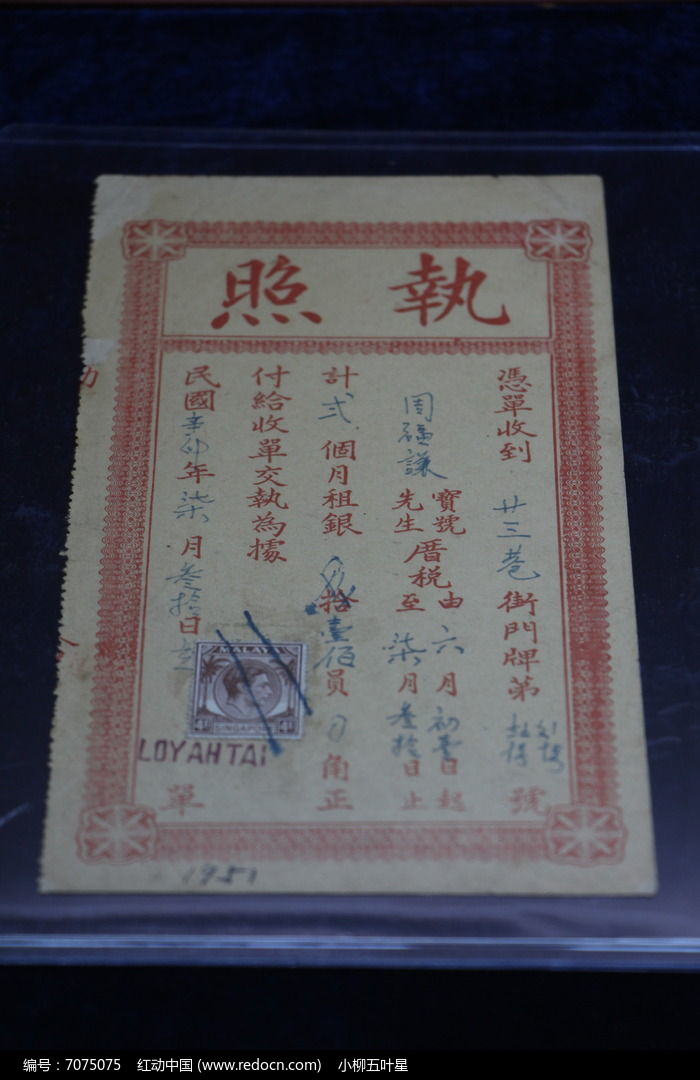 執照
憑單收到 廿三巷 街門牌第 號
周福謙 寶號 先生 厝税 由 六 月 初壹 日起 至 柒 月 叁拾 日止
計 弍 個月租銀 拾 壹佰 員 角正
付給收單交執為據
民國 辛卯 年 柒 月 叁拾 日 單
MALAYA
SINGAPORE
LOYAHTAI
1951
编号：7075075 红动中国 (www.redocn.com) 小柳五叶星